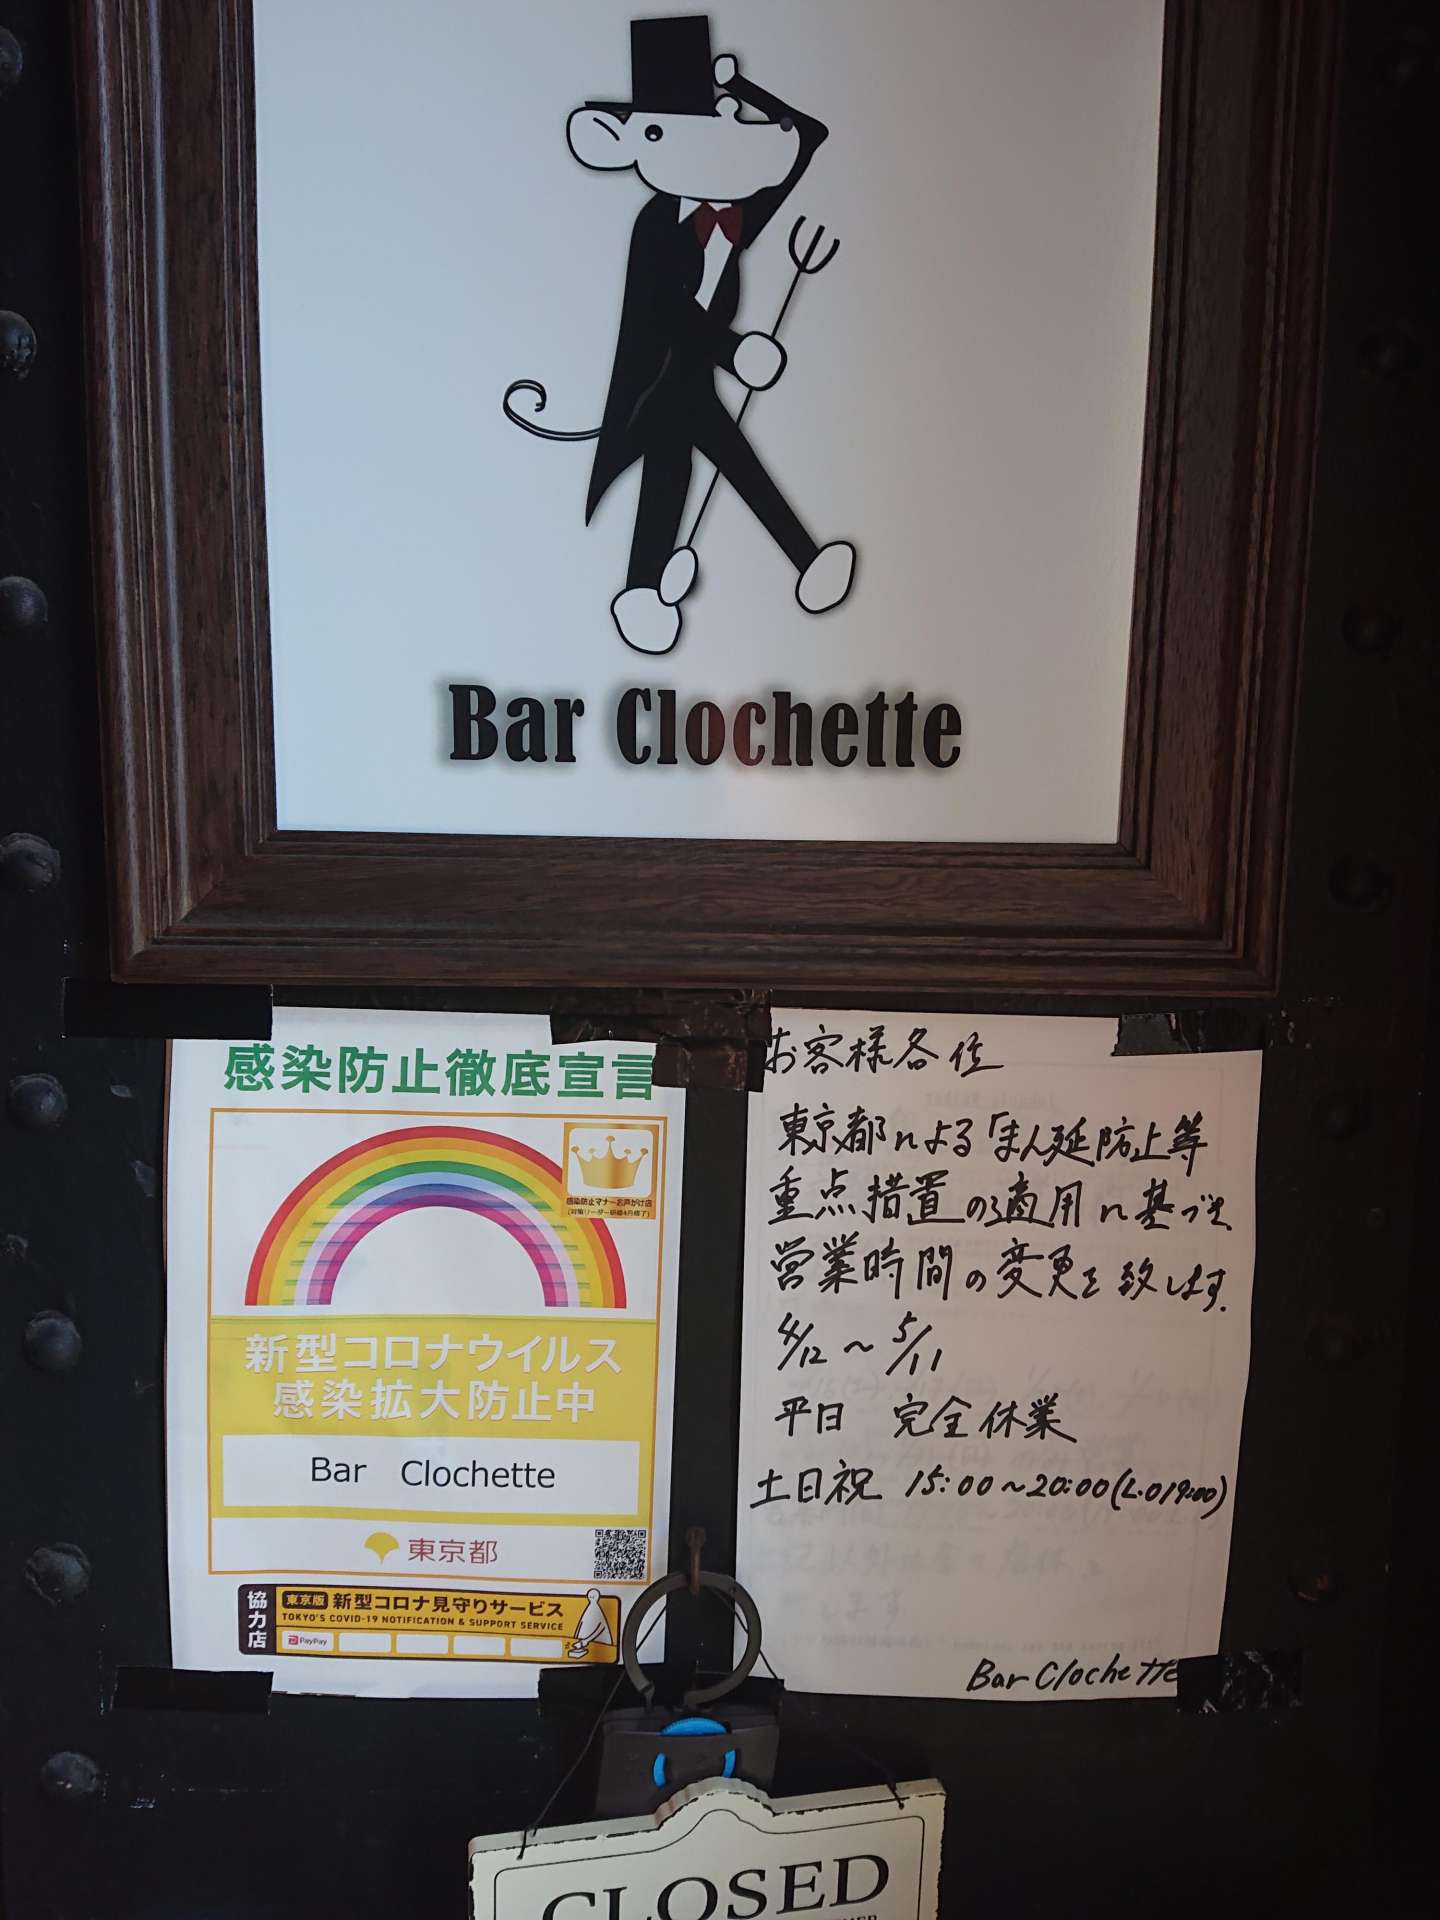 Bar Clochette
感染防止徹底宣言
感染防止マナーお声がけ店
新型コロナウイルス
感染拡大防止中
Bar Clochette
東京都
協力店
東京版 新型コロナ見守りサービス
TOKYO'S COVID-19 NOTIFICATION & SUPPORT SERVICE
PayPay
お客様各位
東京都による「まん延防止等
重点措置の適用に基づき
営業時間の変更を致します.
4/12～5/11
平日 完全休業
土日祝 15:00～20:00(L.O19:00)
Bar Clochette
CLOSED